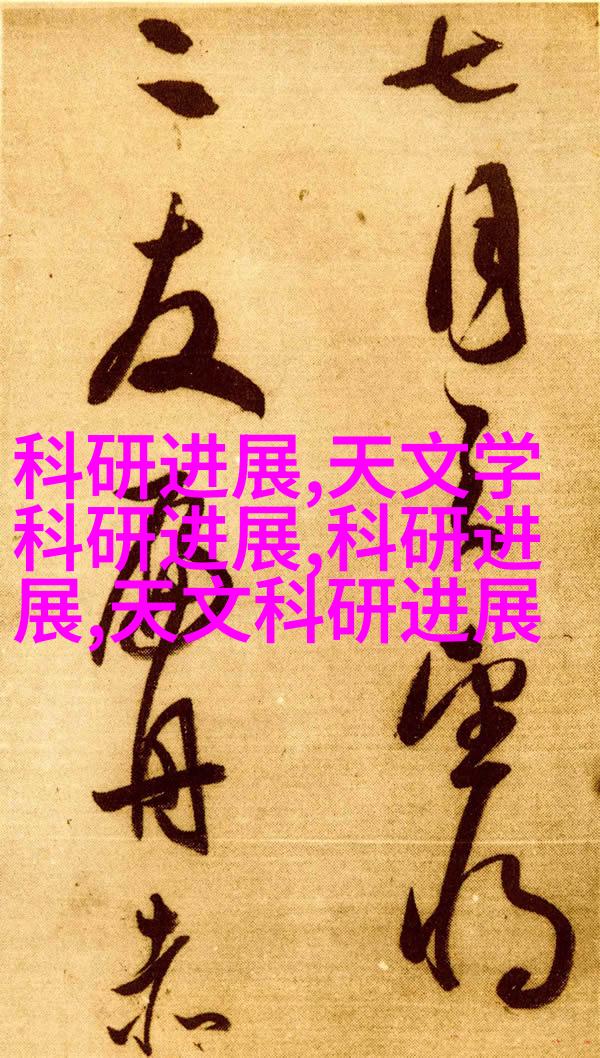 七月望将
二友舟赤
科研进展,天文学
科研进展,科研进
展,天文科研进展